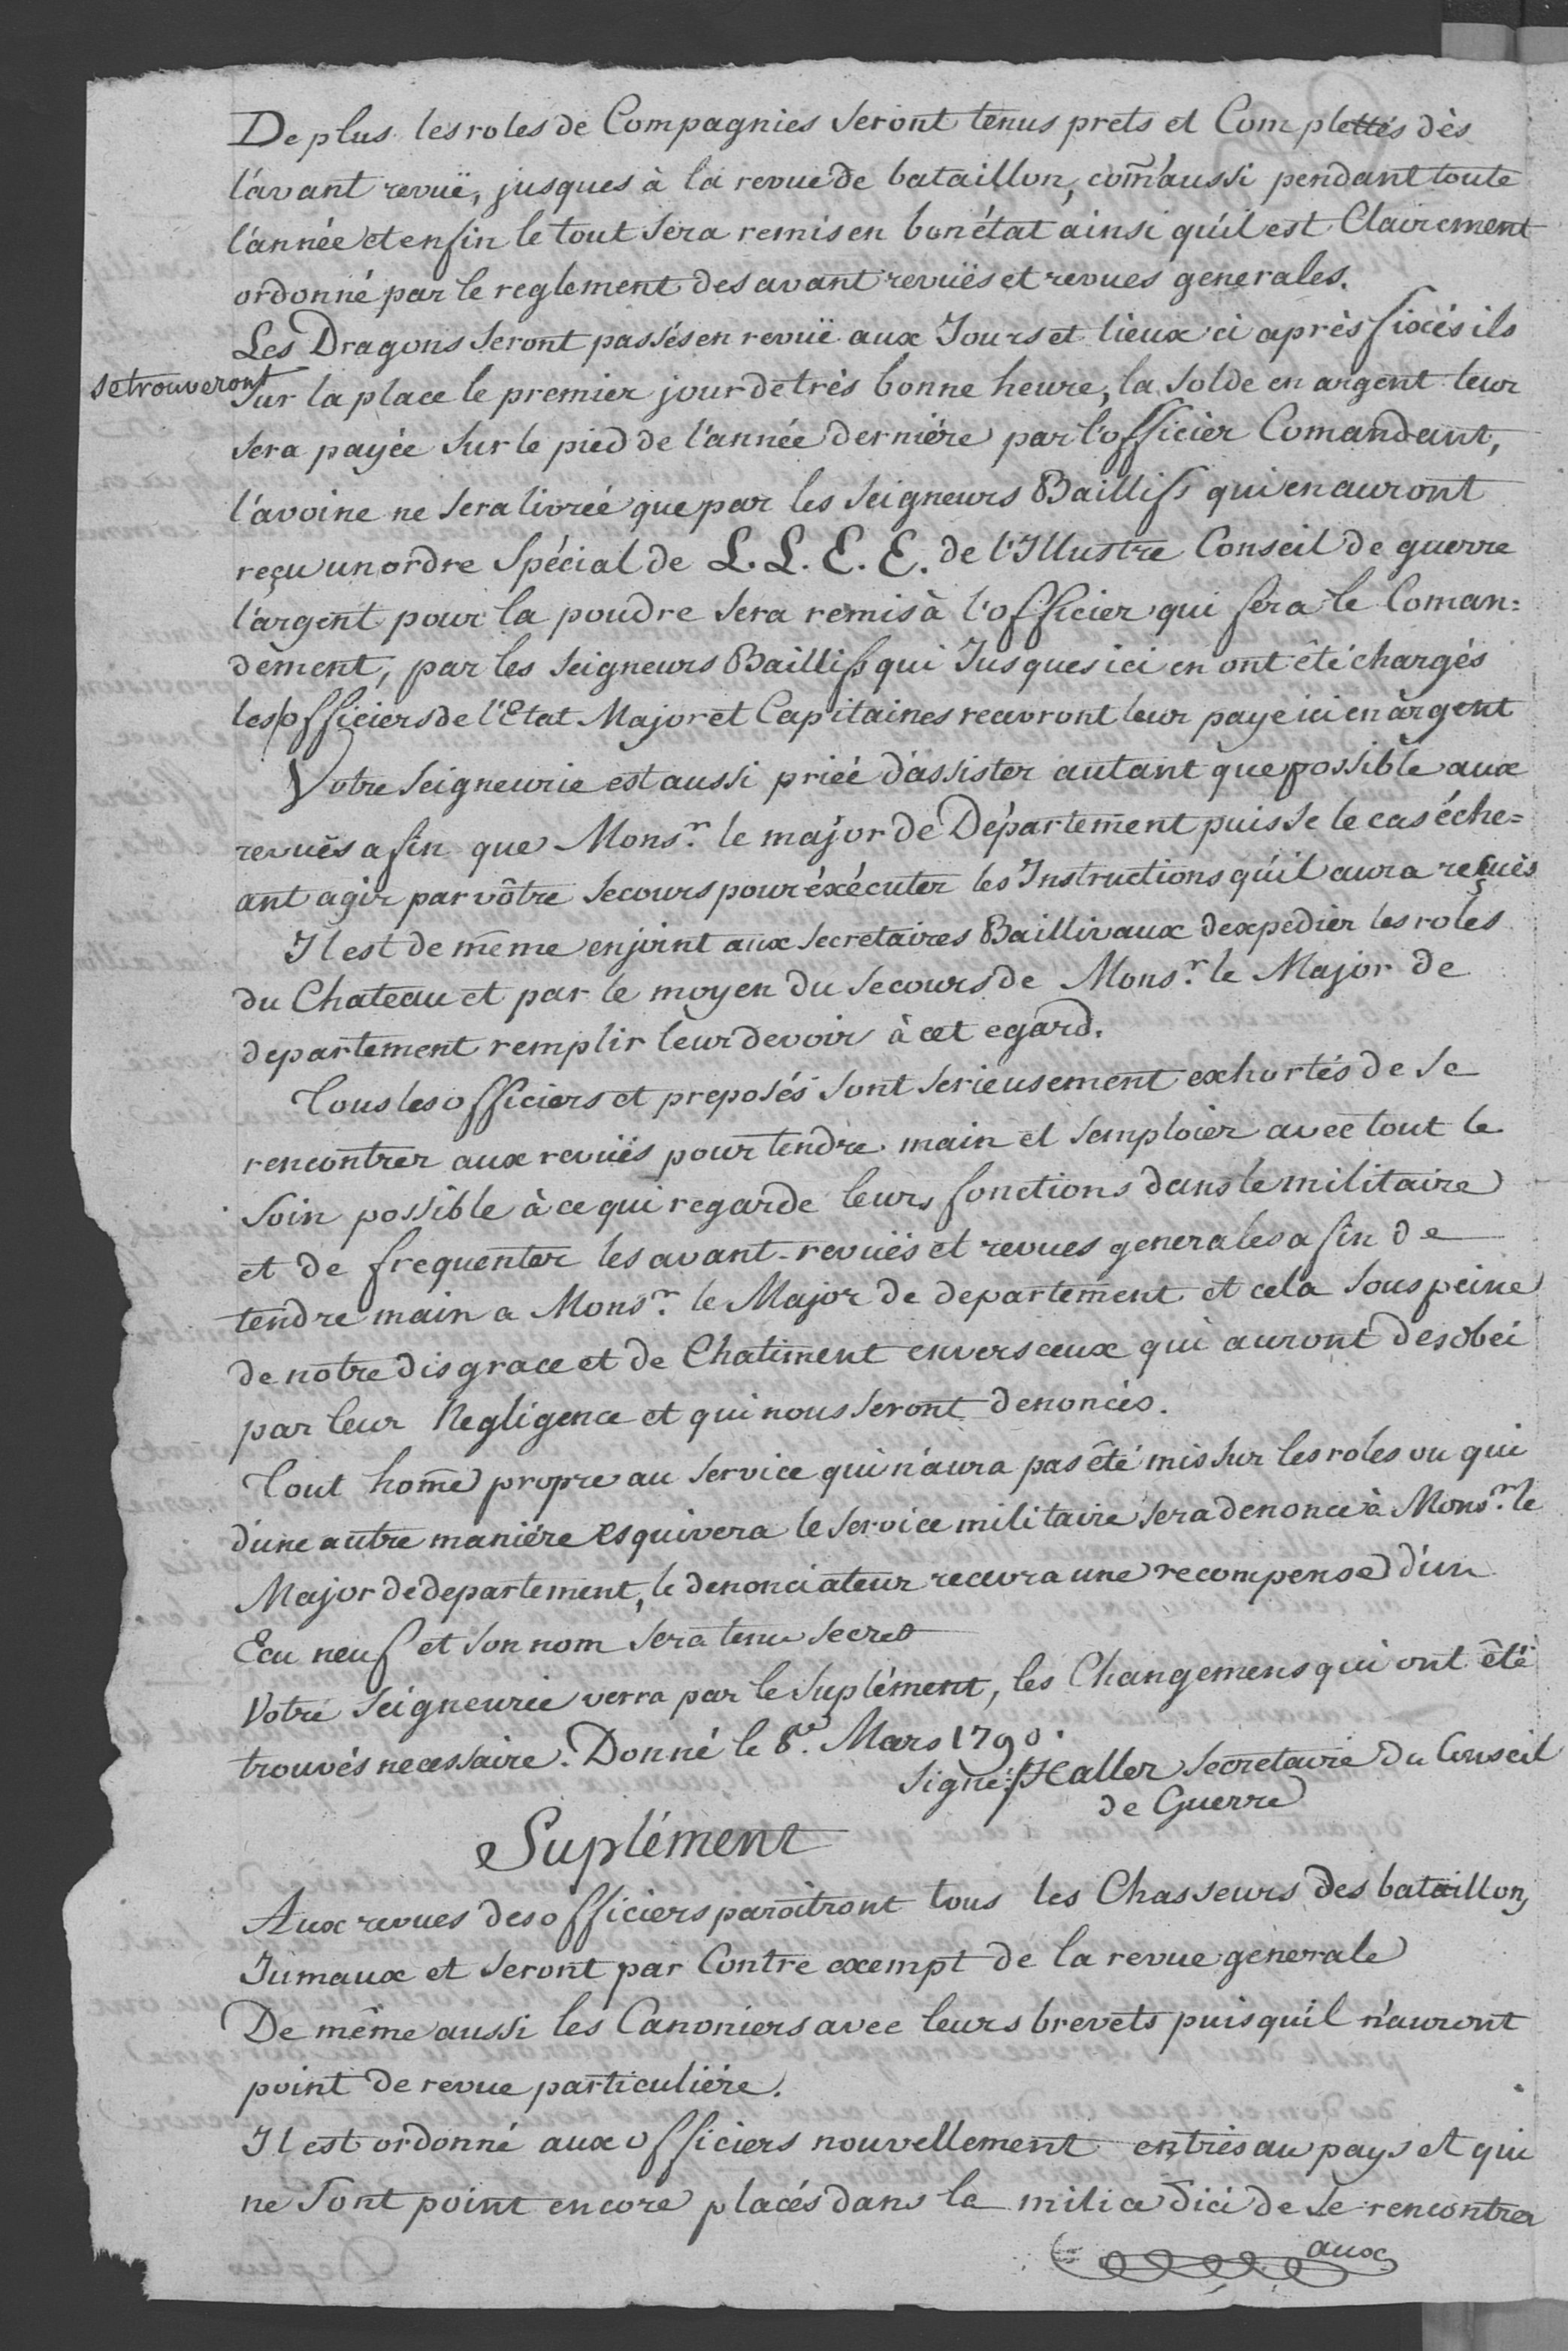 De plus les roles de Compagnies seront tenus prets et Complettés dès
l'avant revuë, jusques à la revue de bataillon, com̃'aussi pendant toute
l'année et enfin le tout sera remis en bon état ainsi qu'il est Clairement
ordonné par le reglement des avant revuës et revues generales.
Les Dragons seront passés en revuë aux Jours et lieux ci après fixés ils
se trouveront
sur la place le premier jour de très bonne heure, la solde en argent leur
sera payée sur le pied de l'année derniére par l'officier Comandant,
l'avoine ne sera livrée que par les seigneurs Baillifs qui en auront
reçu un ordre Spécial de L. L. E. E. de l'Illustre Conseil de guerre
l'argent pour la poudre sera remis à l'officier qui sera le Coman=
dement, par les seigneurs Baillifs qui Jusques ici en ont êté chargés
les officiers de l'Etat Major et Capitaines recevront leur paye ici en argent
Votre seigneurie est aussi priée d'assister autant que possible aux
revuës afin que Monsr. le major de Département puisse le cas éche=
ant agir par vôtre secours pour éxécuter les Instructions qu'il aura reçuës
Il est de même enjoint aux secretaires Baillivaux d'expedier les roles
du Chateau et par le moyen du secours de Monsr. le Major de
departement remplir leur devoir à cet egard.
Tous les officiers et preposés sont serieusement exhortés de se
rencontrer aux revuës pour tendre main et s'emploier avec tout le
soin possible à ce qui regarde leurs fonctions dans le militaire
et de frequenter les avant-revuës et revues generales afin de
tendre main a Monsr. le Major de departement et cela sous peine
de nôtre disgrace et de Chatiment envers ceux qui auront desobéi
par leur Negligence et qui nous seront denoncés.
Tout hom̃e propre au service qui n'aura pas êté mis sur les roles ou qui
d'une autre maniére esquivera le service militaire sera denoncé à Monsr. le
Major de departement, le denonciateur recevra une recompense d'un
Ecu neuf et son nom sera tenu secret
Votre seigneurie verra par le suplément, les Changemens qui ont êté
trouvés necessaire. Donné le 8e. Mars 1790.
signé: Haller secretaire du Conseil
de Guerre
Suplément
Aux revues des officiers paroîtront tous les Chasseurs des bataillons
Jumaux et seront par Contre exempt de la revue generale
De même aussi les Canoniers avec leurs brevets puisqu'il n'auront
point de revue particuliére.
Il est ordonné aux officiers nouvellement entrés au pays et qui
ne sont point encore placés dans la milice d'ici de se rencontrer
aux